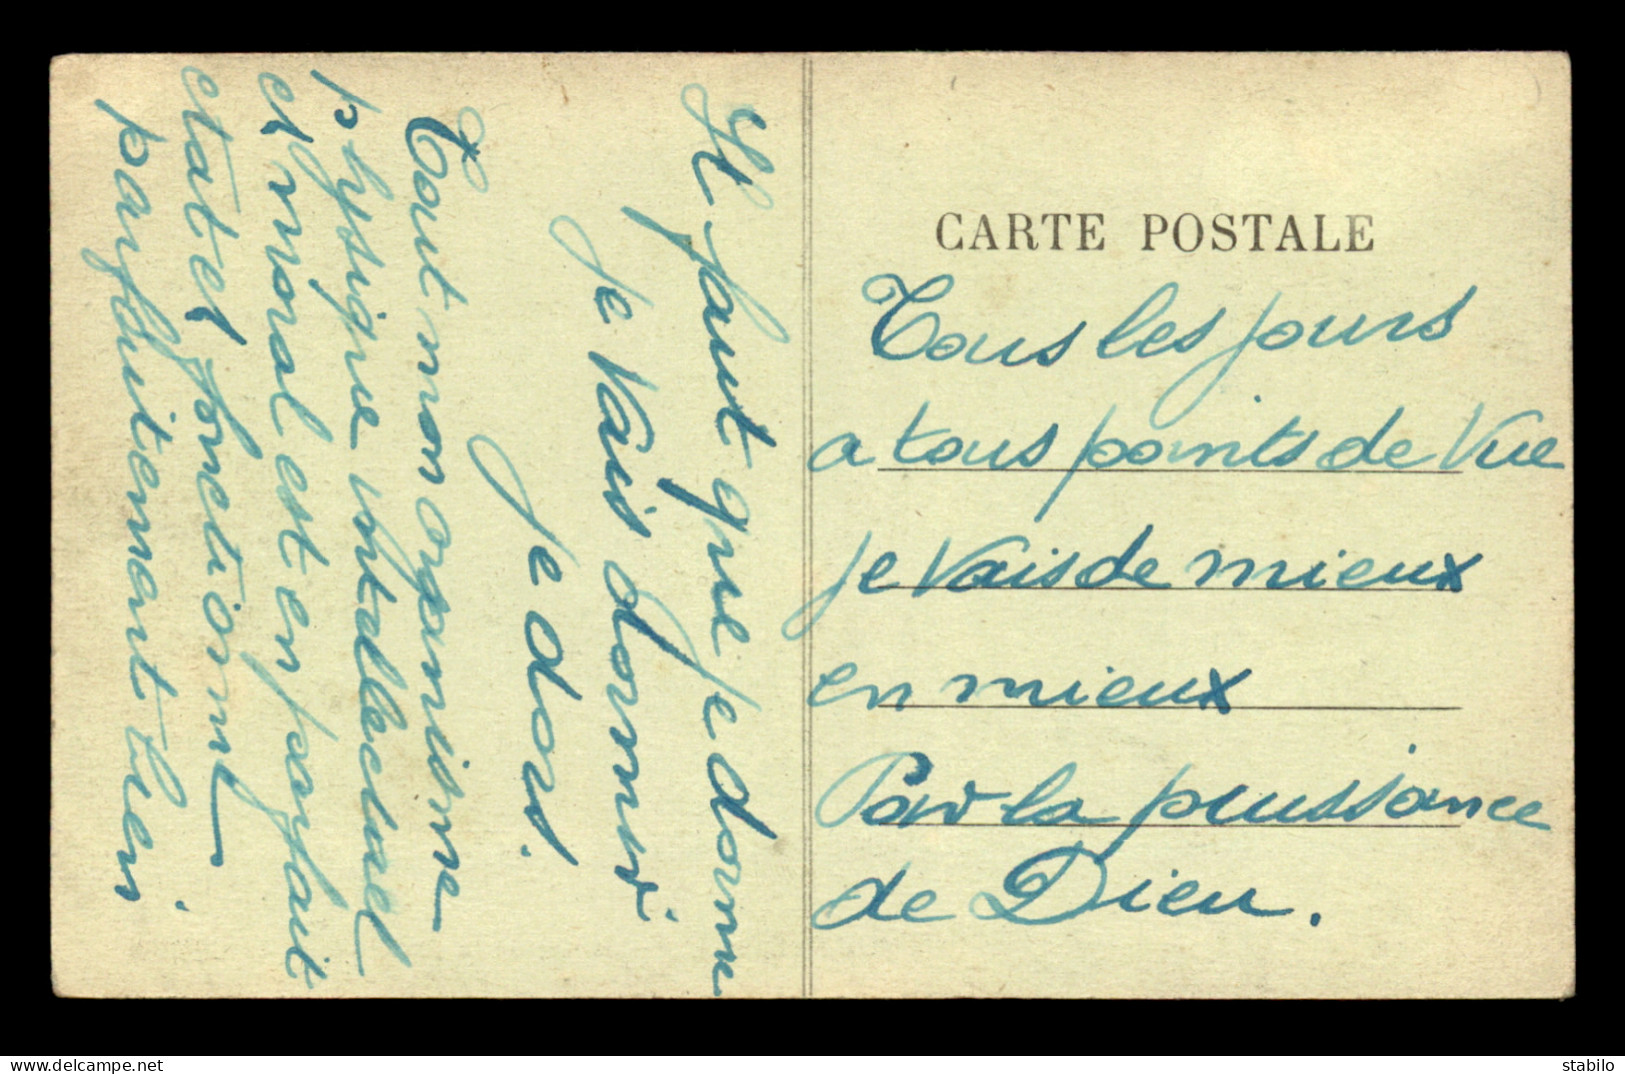 CARTE POSTALE
Tous les jours
a tous points de vue
je vais de mieux
en mieux
Par la puissance
de Dieu.
Il faut que je dorme
je vais dormir
je dors.
Tout mon organisme
physique intellectuel
et moral est en parfait
etat et fonctionne
parfaitement bien.
www.delcampe.net
stabilo